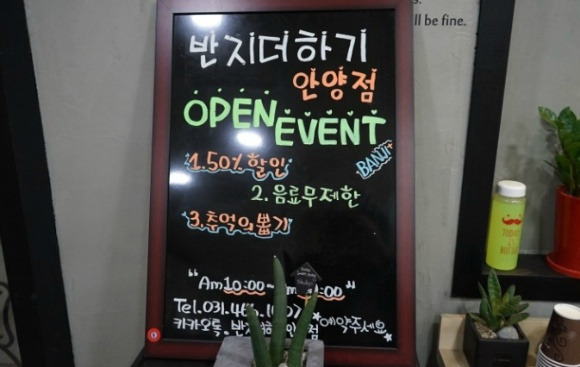 ll be fine.
반지더하기
안양점
OPEN EVENT
BANJI+
1. 50% 할인
2. 음료무제한
3. 추억의 뽑기
"Am 10:00 ~ :00"
Tel. 031.
카카오톡. 반지 점 예약주세요